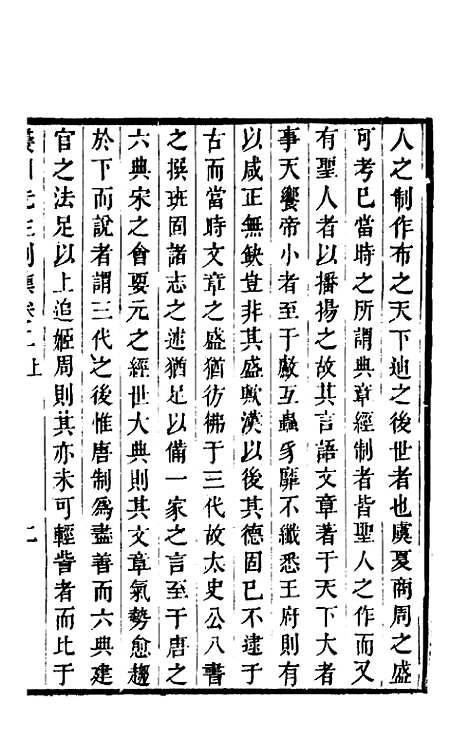 人之制作布之天下廸之後世者也虞夏商周之盛
可考已當時之所謂典章經制者皆聖人之作而又
有聖人者以播揚之故其言語文章著于天下大者
事天饗帝小者至于㱿互蟲豸靡不纖悉王府則有
以咸正無缺豈非其盛歟漢以後其德固已不逮于
古而當時文章之盛猶彷彿于三代故太史公八書
之撰班固諸志之述猶足以備一家之言至于唐之
六典宋之會要元之經世大典則其文章氣勢愈趨
於下而說者謂三代之後惟唐制爲盡善而六典建
官之法足以上追姬周則其亦未可輕訾者而比于
震川先生別集卷二上 二